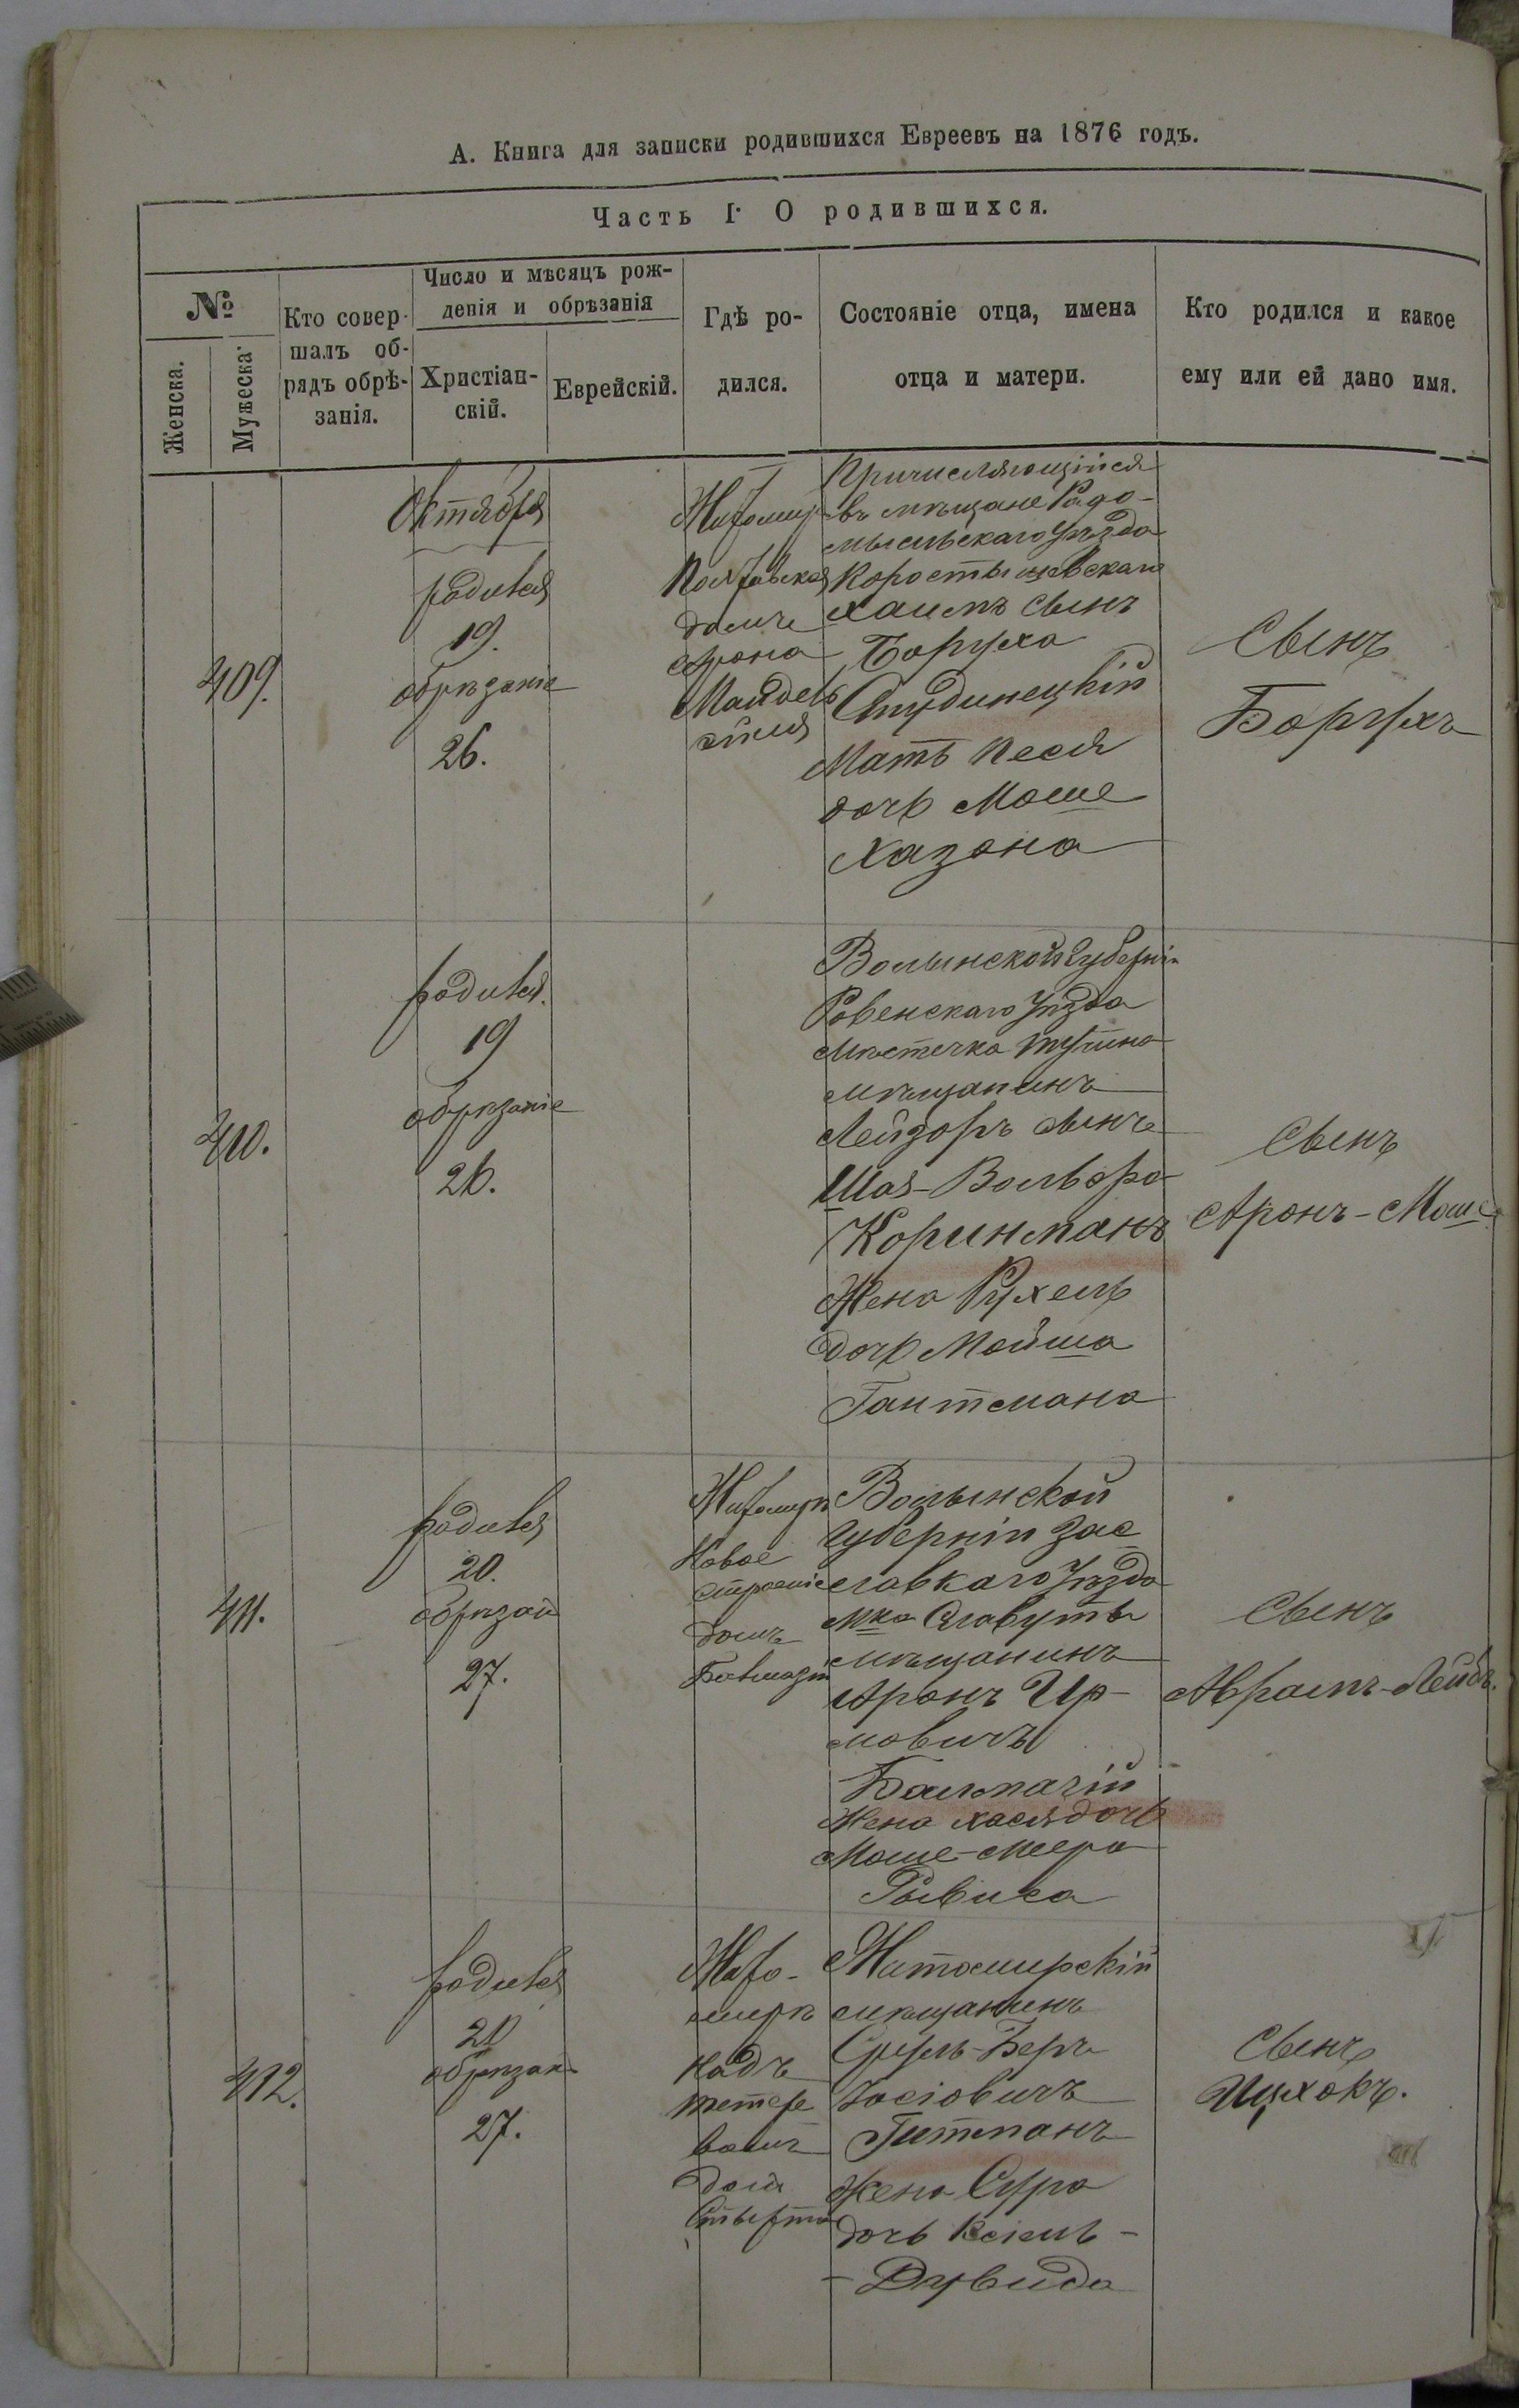 А. Книга для записки родившихся Евреевъ на 1876 годъ.
Часть I. О родившихся.
№
Женска.
Мужеска.
Кто совер-
шалъ об-
рядъ обрѣ-
занія.
Число и мѣсяцъ рож-
денія и обрѣзанія
Христіан-
скій.
Еврейскій.
Гдѣ ро-
дился.
Состояніе отца, имена
отца и матери.
Кто родился и какое
ему или ей дано имя.
409.
Октября
родился
19.
обрѣзаніе
26.
Житомир
домъ
Арона
Причисляющійся
въ мѣщане Радо-
мысльскаго Уѣзда
Коростышевскаго
Хаимъ сынъ
Боруха
Студинецкій
Мать Песя
дочь Моше
Хазона
Сынъ
Борухъ
410.
родился.
19
обрѣзаніе
26.
Волынской Губерніи
Ровенскаго Уѣзда
Мѣстечка
мѣщанинъ
Лейзоръ сынъ
Шая-Вольфа
Коринманъ
Жена Рухель
дочь Мойша
Гантмана
Сынъ
Аронъ-Моше
411.
родился
20.
обрѣзан
27.
Житомиръ
Новое
строеніе
домъ
Волынской
Губерніи Зас
славкаго Уѣзда
Мка Славуты
мѣщанинъ
Аронъ Ир-
мовичъ
Бальмагій
Жена Хася дочь
Моше-Меера
Рывиса
Сынъ
Аврамъ-Лейбъ.
412.
родился
20
обрѣзан
27.
Жито-
миръ
надъ
тете
домъ
Житомирскій
мѣщанинъ
Сруль-Беръ
Іосіовичъ
Гитманъ
Жена Сура
дочь Кеіель-
-Дувида
Сынъ
Ицхокъ.